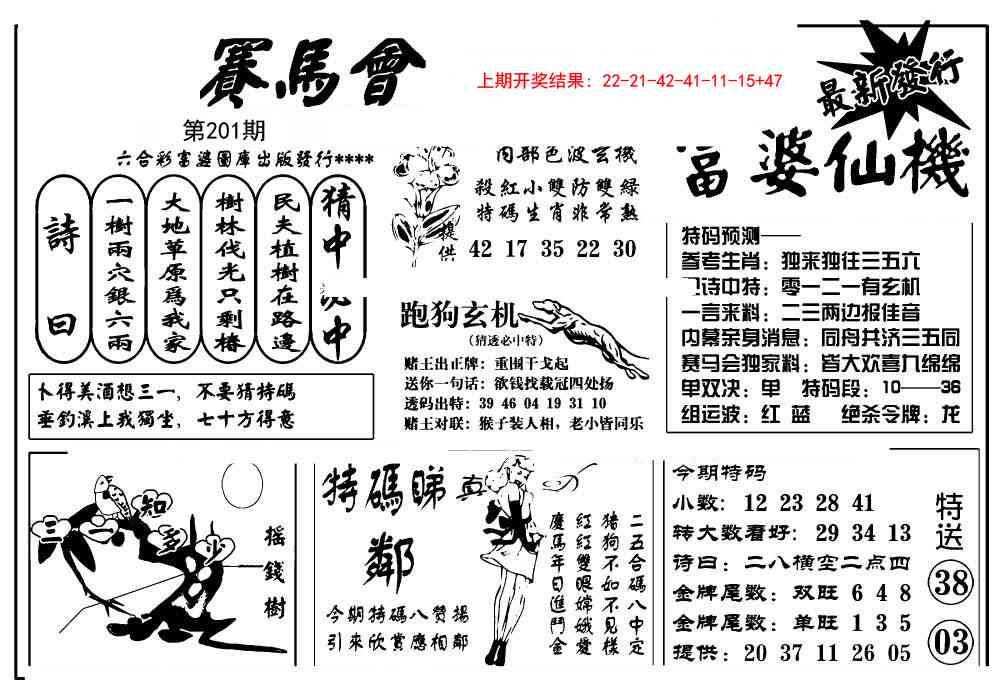 賽馬會
上期开奖结果：22-21-42-41-11-15+47
最新發行
第201期
六合彩富婆圖庫出版發行****
婆仙機
詩曰
一樹兩穴銀六兩
大地草原爲我家
樹林伐光只剩樁
民夫植樹在路邊
猜中
中
卜得美酒想三一，不要猜特碼
垂釣溪上我獨坐，七十方得意
内部色波玄機
殺紅小雙防雙綠
特碼生肖非常熟
提供
42 17 35 22 30
跑狗玄机
(猜透必中特)
赌王出正牌：重围干戈起
送你一句话：欲钱找载冠四处扬
透码出特：39 46 04 19 31 10
赌王对联：猴子装人相，老小皆同乐
特码预测——
参考生肖：独来独往三五六
诗中特：零一二一有玄机
一言来料：二三两边报佳音
内幕亲身消息：同舟共济三五同
赛马会独家料：皆大欢喜九绵绵
单双决：单 特码段：10——36
组运波：红 蓝 绝杀令牌：龙
三一知多少
摇錢樹
特碼睇真
鄰
今期特碼八赞揚
引來欣賞應相鄰
二五合碼八中定
豬狗不如不見樣
紅紅雙眼嫦娥愛
慶馬年日進鬥金
今期特码
小数：12 23 28 41
转大数看好：29 34 13
诗曰：二八横空二点四
金牌尾数：双旺 6 4 8
金牌尾数：单旺 1 3 5
提供：20 37 11 26 05
特送
38
03